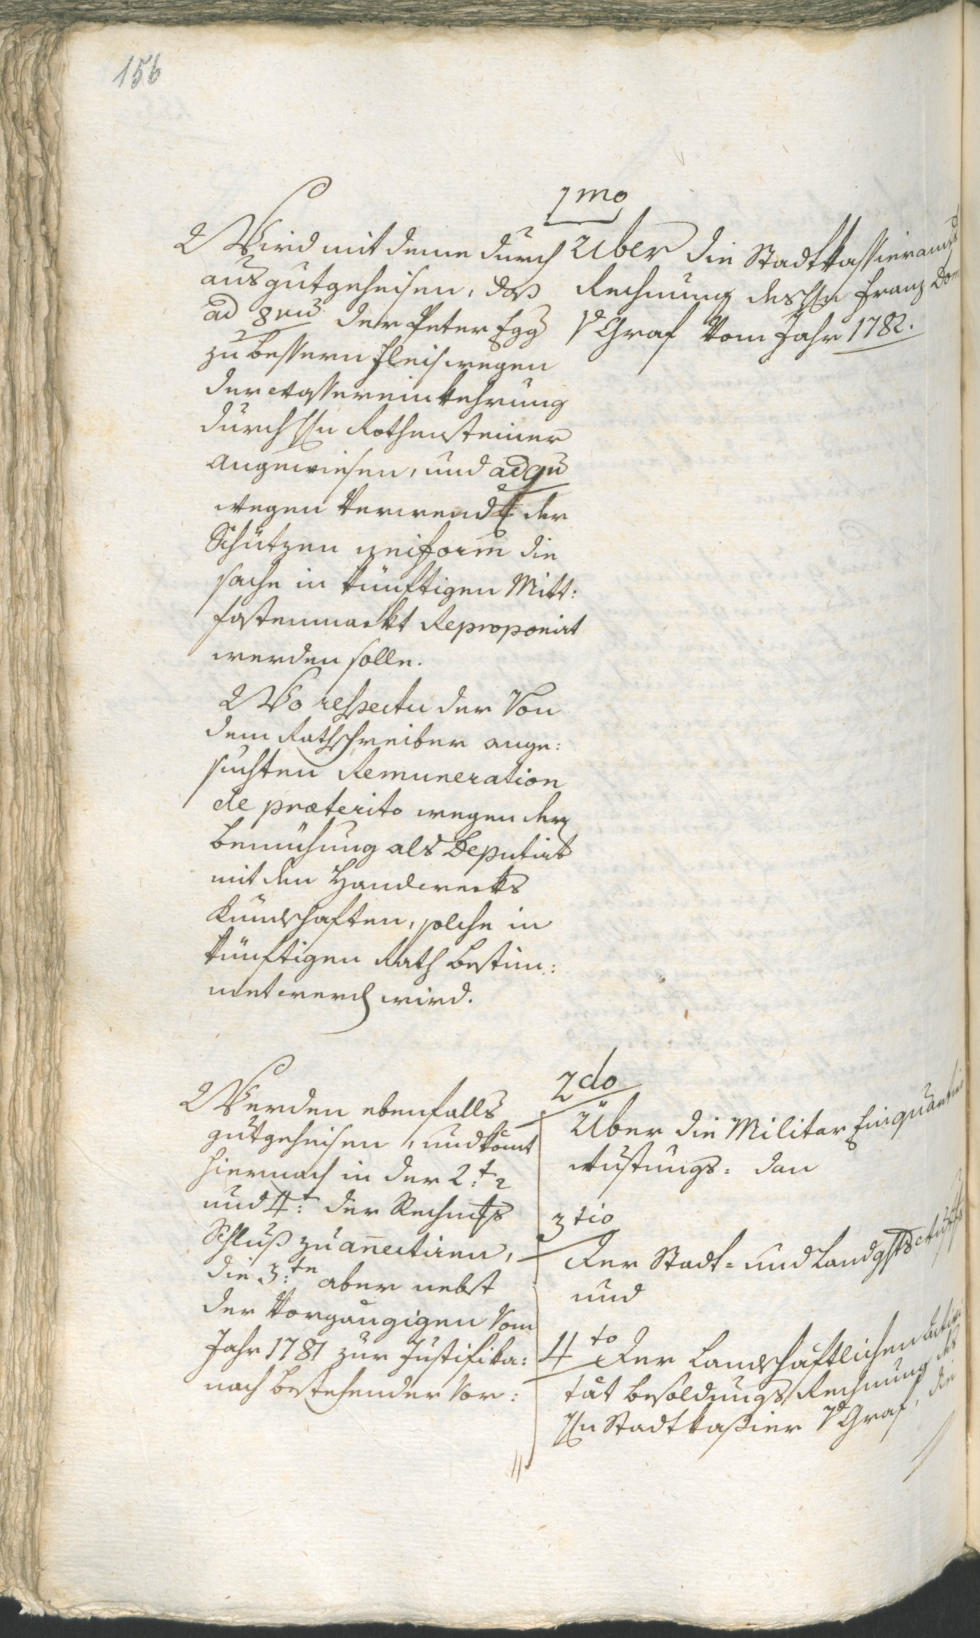 156
1mo
Wird mit deme durch
aus gutgeheisen, daß
ad 8vũ der Peter Egg
zu bessern Fleis wegen
der wassereinkehrung
durch Hn Rothensteiner
angewiesen, und ad 9ũ
wegen Verwend der
Schützen uniform die
sache in künftigen Mitt:
fastenmarkt Reproponirt
werden solle.
Wo respectu der Von
dem Rathschreiber ange:
suchten Remuneration
de præterito wegen der
bemühung als Deputirt
mit den Handwerks
Kundschaften, solche in
künftigen Rath bestim:
met werd wird.
Über die Stadtkassieramts
Rechnung des Hn Franz Dom
v Graf Vom Jahr 1782.
Werden ebenfalls
gutgeheisen, und komt
hiernach in der 2t
und 4t der Rechnungs
Schluß zu annectiren,
die 3:te aber nebst
der Vorgängigen Vom
Jahr 1781 zur Justifika:
nach bestehender Vor:
2do
Über die Militar Einquartir
kostungs: dan
3tio
Der Stadt= und Landgsts
und
4to Der Landschaftlichen
tät besoldungs Rechnung des
Hn Stadtkaßier v Graf, die